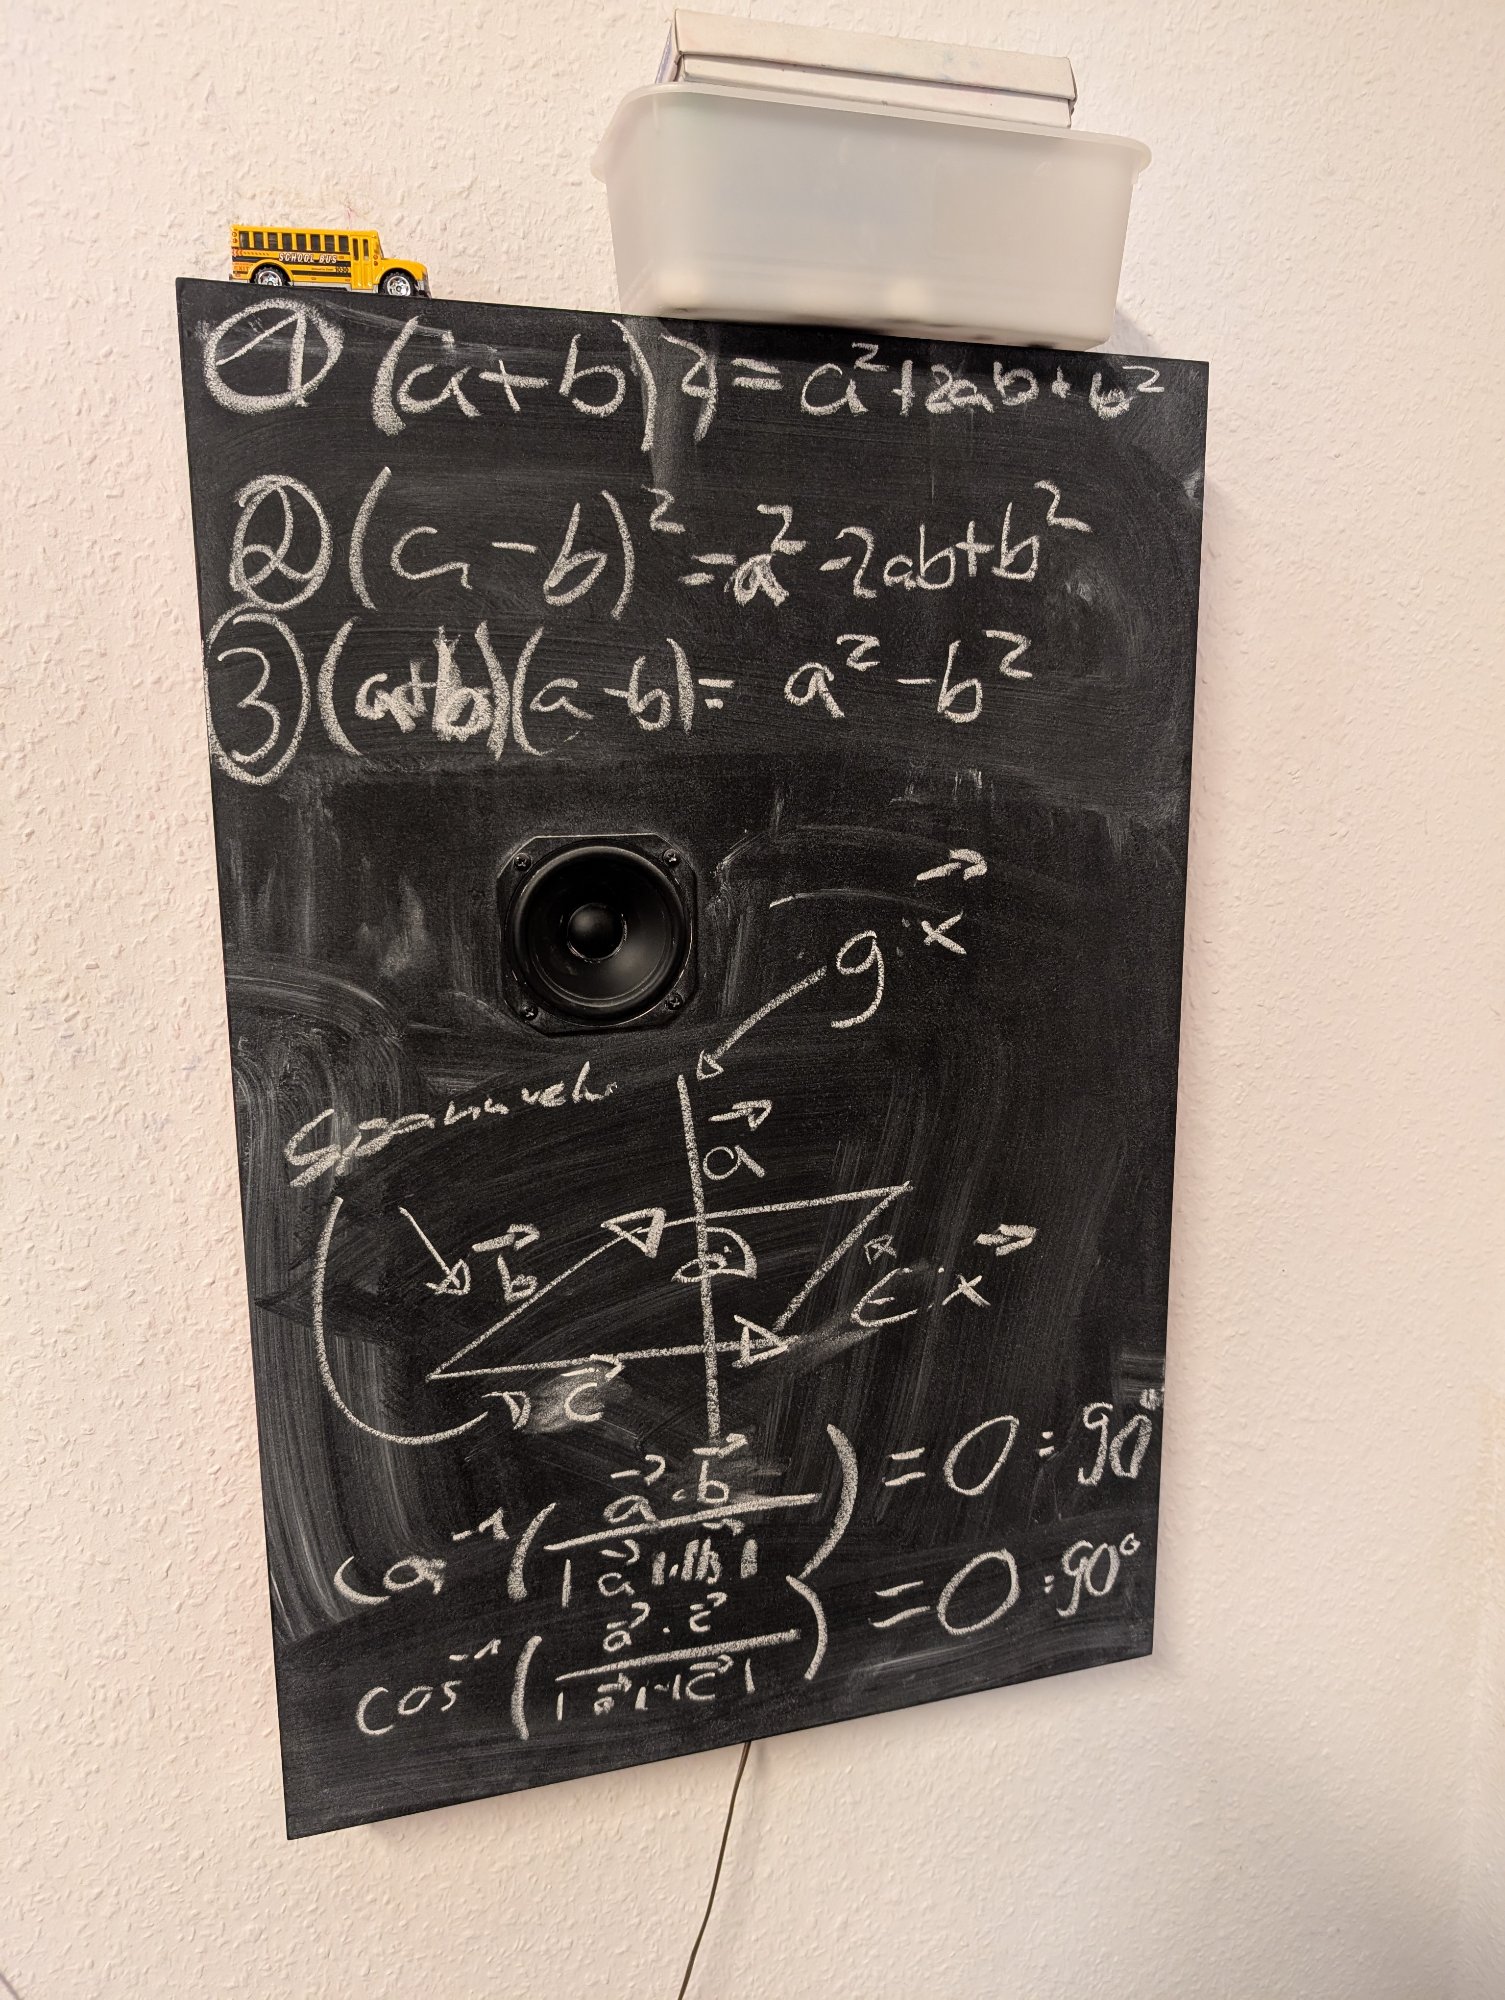 SCHOOL BUS
① (a+b)² = a²+2ab+b²
② (a-b)² = a²-2ab+b²
③ (a+b)(a-b) = a²-b²
g: x⃗
a⃗
b⃗
E: x⃗
c⃗
cos⁻¹(a⃗·b⃗ / |a⃗|·|b⃗|) = 0 : 90°
cos⁻¹(a⃗·c⃗ / |a⃗|·|c⃗|) = 0 : 90°